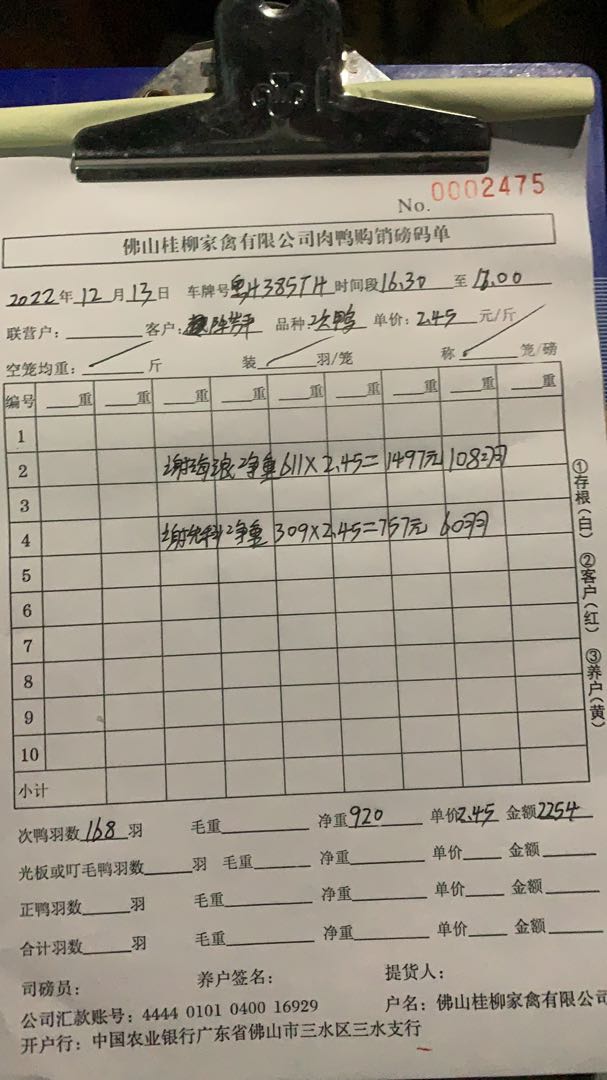 No. 0002475
佛山桂柳家禽有限公司肉鸭购销磅码单
2022年12月13日 车牌号 H385TH 时间段16.30至17.00
联营户: 客户: 品种:次鸭 单价:2.45元/斤
空笼均重: 斤 装 羽/笼 称 笼/磅
编号 重 重 重 重 重 重 重 重
1
2 谢海浪净重611×2.45=1497元 108羽
3
4 谢 科净重309×2.45=757元 60羽
5
6
7
8
9
10
小计
①存根(白) ②客户(红) ③养户(黄)
次鸭羽数168羽 毛重 净重920 单价2.45 金额2254
光板或叮毛鸭羽数 羽 毛重 净重 单价 金额
正鸭羽数 羽 毛重 净重 单价 金额
合计羽数 羽 毛重 净重 单价 金额
司磅员: 养户签名: 提货人:
公司汇款账号: 4444 0101 0400 16929 户名: 佛山桂柳家禽有限公司
开户行: 中国农业银行广东省佛山市三水区三水支行